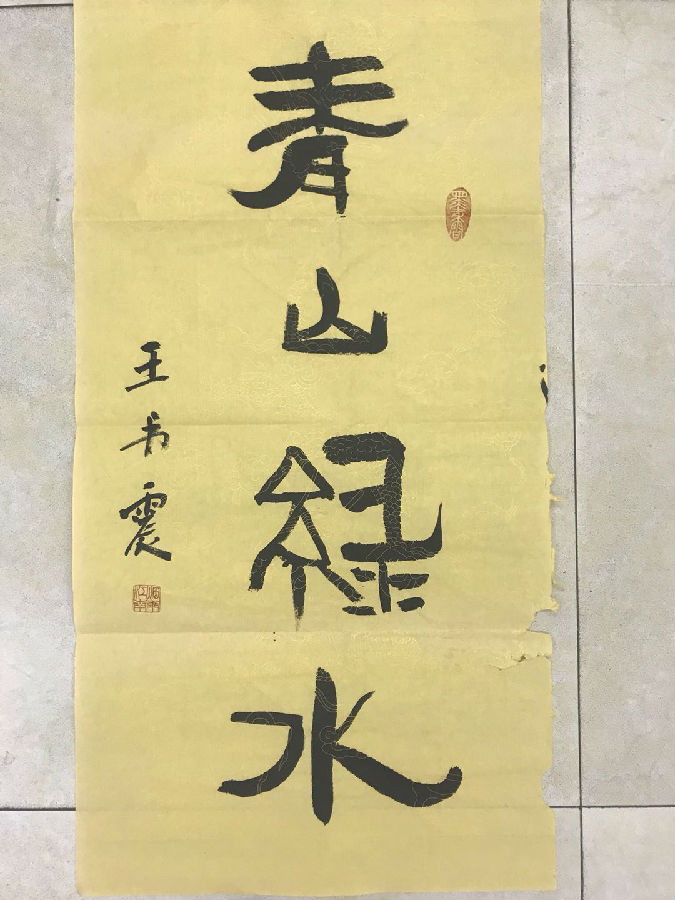 青山綠水
王书震